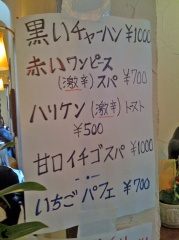 黒いチャーハン ¥1000
赤いワンピース
(激辛)スパ ¥700
ハリケン(激辛)トースト
¥500
甘口イチゴスパ ¥1000
いちごパフェ ¥700